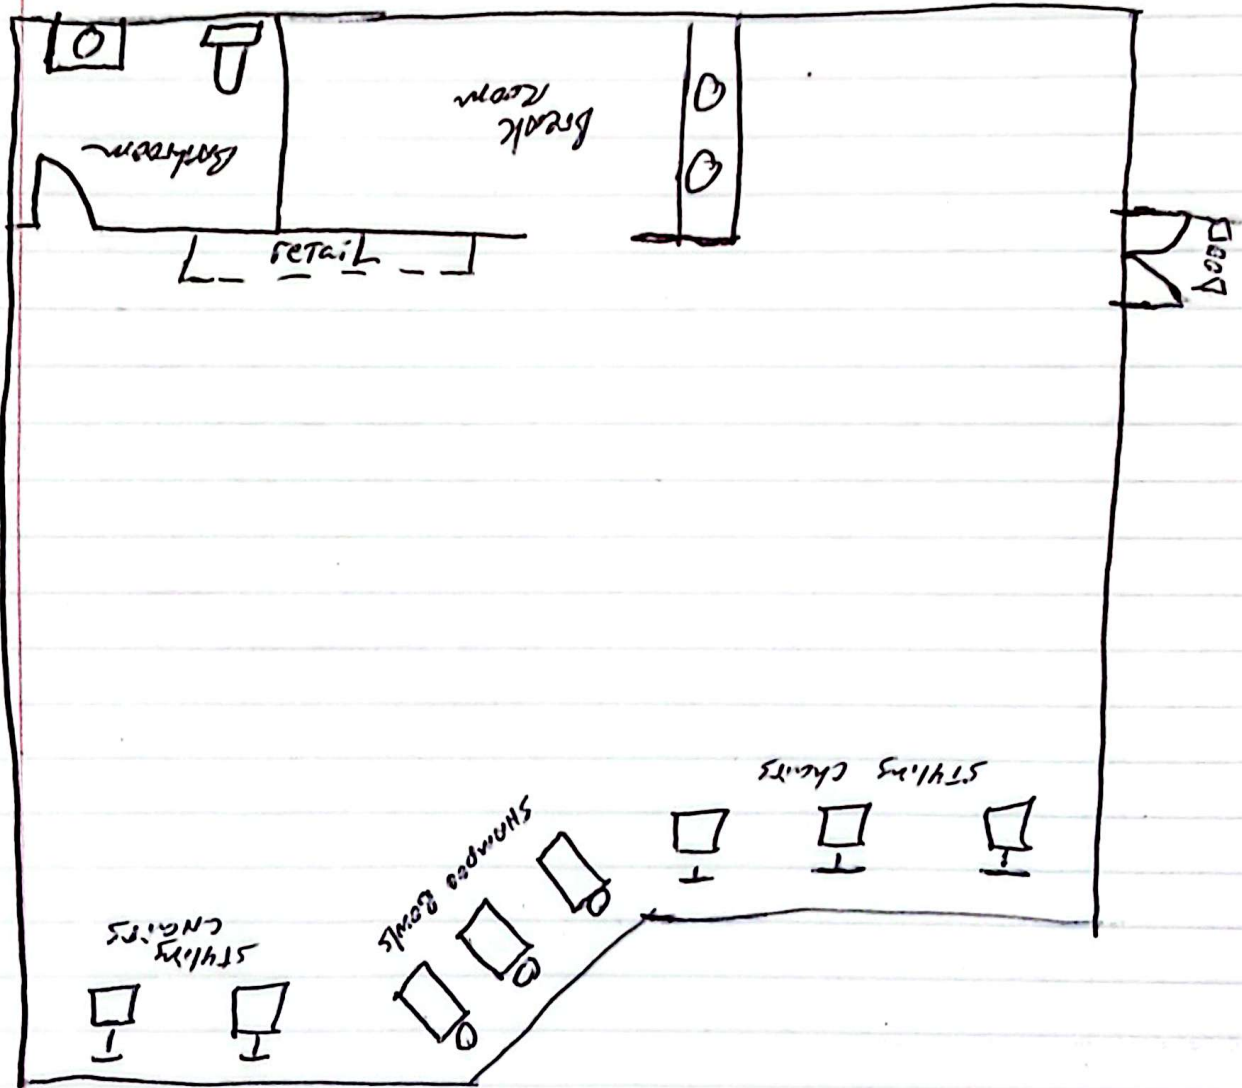 Break
Room
Bathroom
retail
DOOR
STyling Chairs
SHampoo Bowls
STyling
CHairs